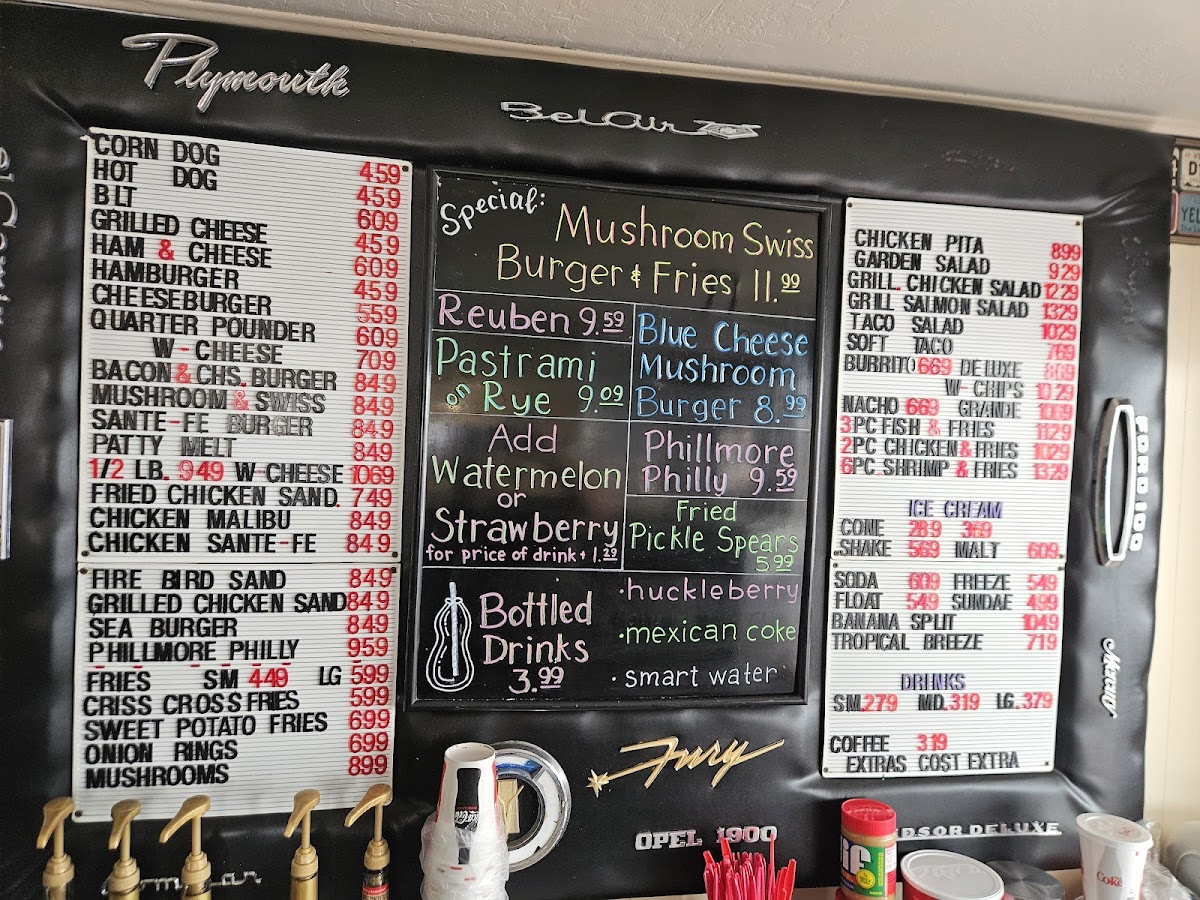 Plymouth
BelAir
CORN DOG 459
HOT DOG 459
BLT 609
GRILLED CHEESE 459
HAM & CHEESE 609
HAMBURGER 459
CHEESEBURGER 559
QUARTER POUNDER 609
W-CHEESE 709
BACON & CHS. BURGER 849
MUSHROOM & SWISS 849
SANTE-FE BURGER 849
PATTY MELT 849
1/2 LB. 949 W-CHEESE 1069
FRIED CHICKEN SAND. 749
CHICKEN MALIBU 849
CHICKEN SANTE-FE 849
FIRE BIRD SAND 849
GRILLED CHICKEN SAND 849
SEA BURGER 849
PHILLMORE PHILLY 959
FRIES SM 449 LG 599
CRISS CROSS FRIES 599
SWEET POTATO FRIES 699
ONION RINGS 699
MUSHROOMS 899
Special:
Mushroom Swiss
Burger & Fries 11.99
Reuben 9.59
Pastrami
on Rye 9.09
Blue Cheese
Mushroom
Burger 8.99
Add
Watermelon
or
Strawberry
for price of drink + 1.29
Phillmore
Philly 9.59
Fried
Pickle Spears
5.99
Bottled
Drinks
3.99
·huckleberry
·mexican coke
·smart water
CHICKEN PITA 899
GARDEN SALAD 929
GRILL. CHICKEN SALAD 1229
GRILL SALMON SALAD 1329
TACO SALAD 1029
SOFT TACO 769
BURRITO 669 DELUXE 869
W-CHIPS 1029
NACHO 669 GRANDE
3PC FISH & FRIES 1129
2PC CHICKEN & FRIES 1129
6PC. SHRIMP & FRIES 1329
ICE CREAM
CONE 289 369
SHAKE 569 MALT 609
SODA 609 FREEZE 549
FLOAT 549 SUNDAE 499
BANANA SPLIT 1049
TROPICAL BREEZE 719
DRINKS
SM. 279 MD. 319 LG. 379
COFFEE 319
EXTRAS COST EXTRA
FORD 100
Fury
OPEL 1900
DSOR DELUXE
Jif
Coke